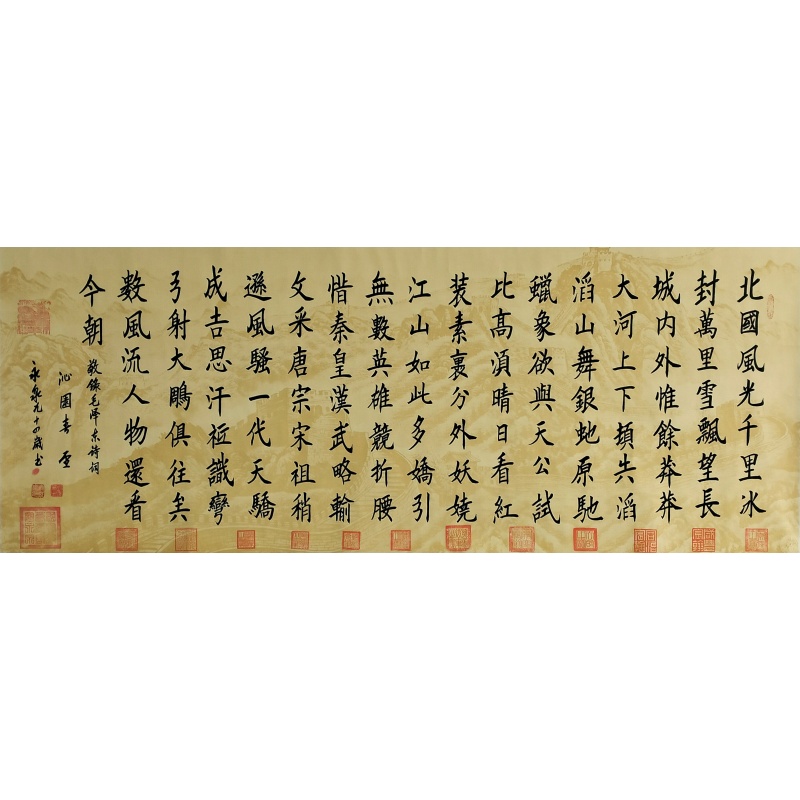 北國風光千里冰
封萬里雪飄望長
城内外惟餘莽莽
大河上下頓失滔
滔山舞銀虵原馳
蠟象欲與天公試
比髙湏晴日看紅
装素裹分外妖嬈
江山如此多嬌引
無數英雄競折腰
惜秦皇漢武略輸
文采唐宗宋祖稍
遜風騷一代天驕
成吉思汗祗識彎
弓射大鵰俱往矣
數風流人物還看
今朝
敬錄毛澤东诗词
沁園春雪
永泉九十四歲书